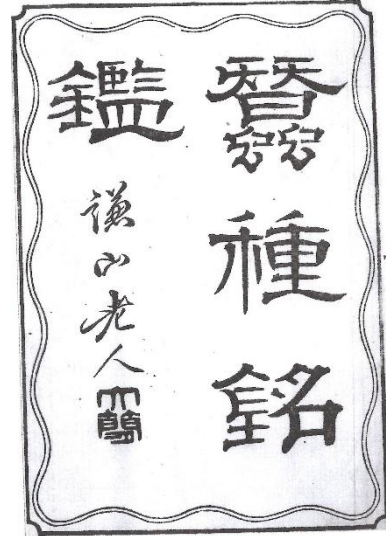 蠶種銘
鑑
謙山老人